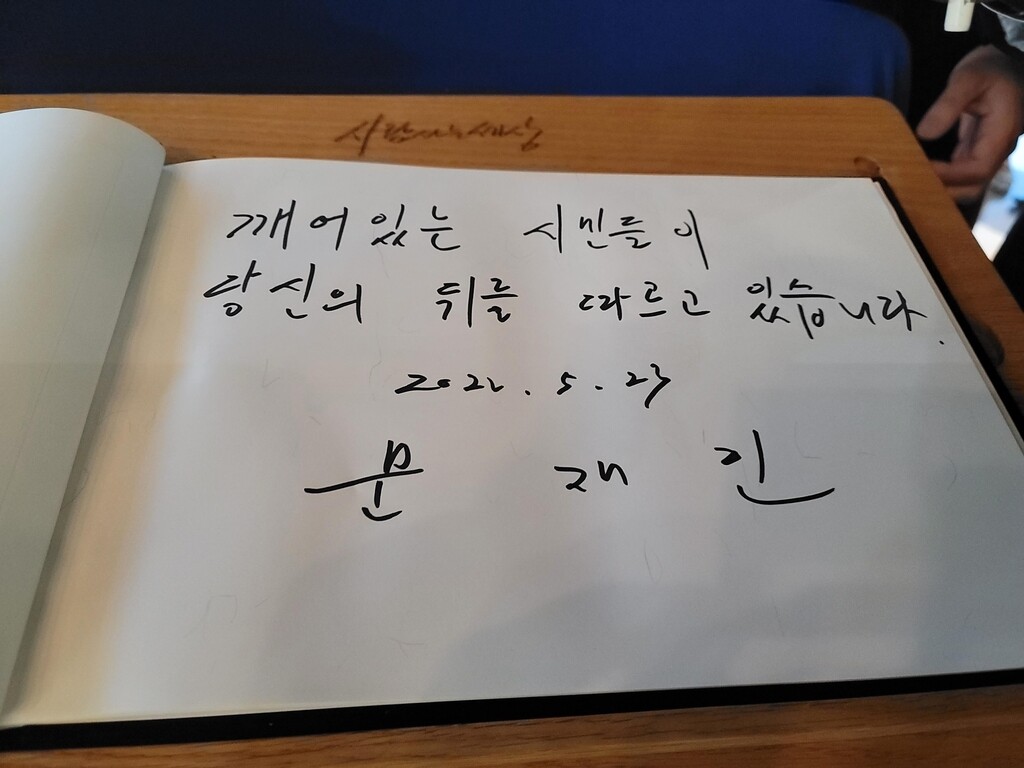 사람사는세상
깨어있는 시민들이
당신의 뒤를 따르고 있습니다.
2022. 5. 23
문 재 인